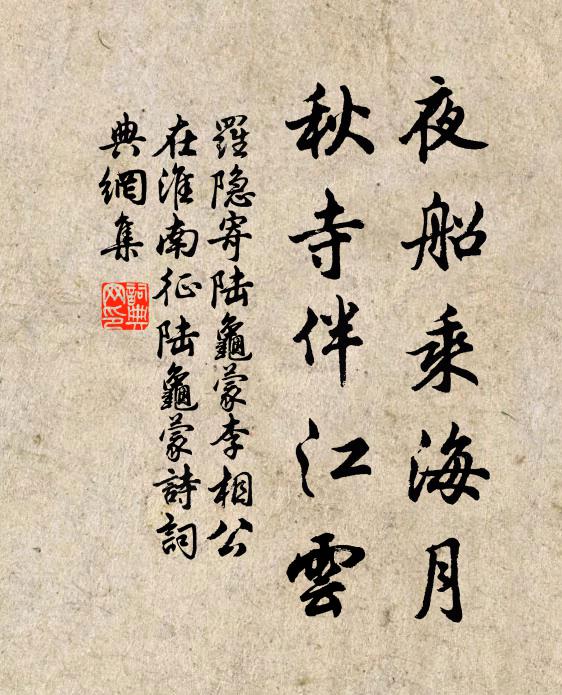 夜船乘海月
秋寺伴江雲
羅隐寄陆龜蒙李相公
在淮南征陆龜蒙詩詞
典網集
詞典
网印